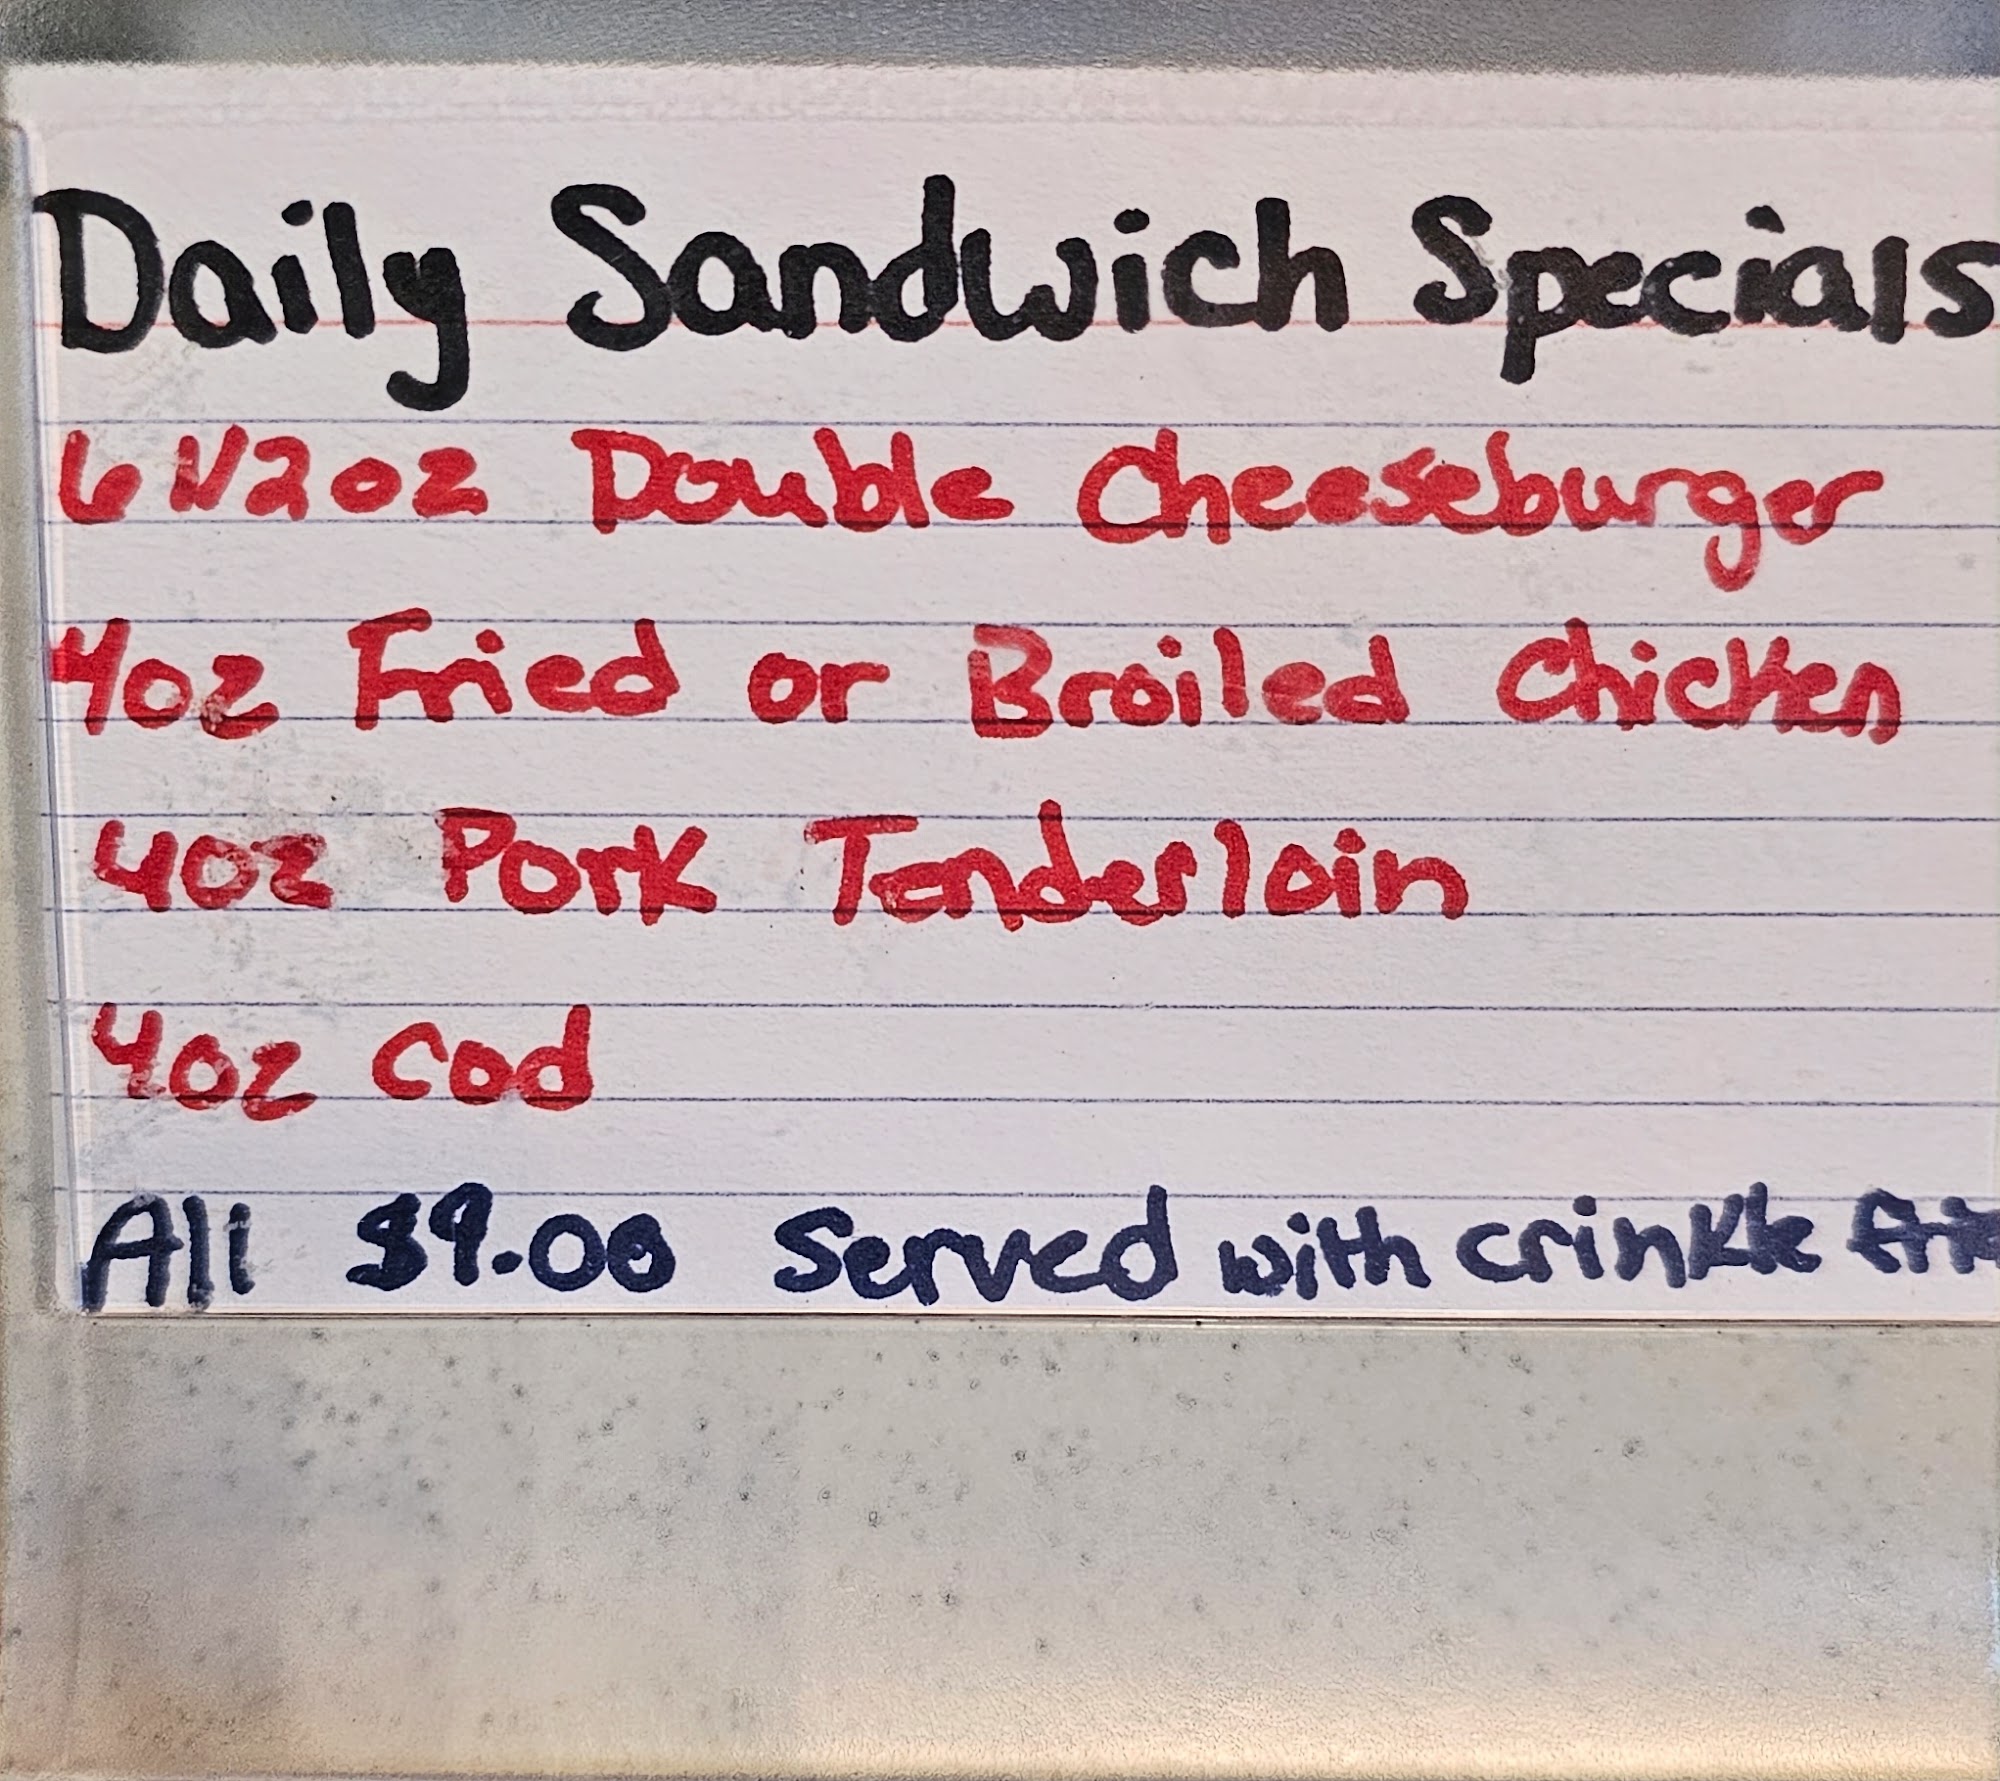 Daily Sandwich Specials
6 1/2oz Double Cheeseburger
4oz Fried or Broiled Chicken
4oz Pork Tenderloin
4oz Cod
All $9.00 Served with crinkle